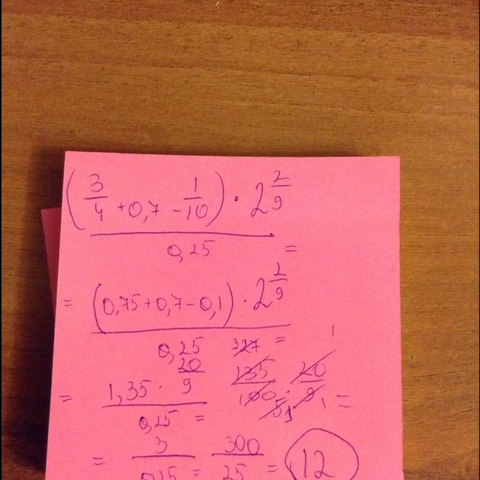 (3/4 + 0,7 - 1/10) · 2 2/9
0,25 =
= (0,75 + 0,7 - 0,1) · 2 2/9
0,25 =
= 1,35 · 20/9 / 0,25 = 135/100 · 20/9 =
= 3/0,25 = 300/25 = 12